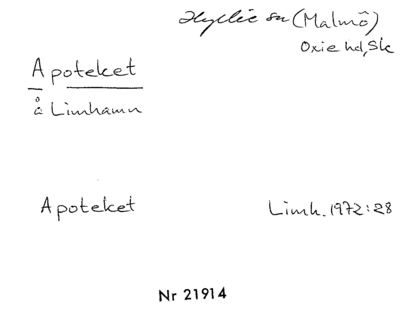 Hyllie sn (Malmö)
Oxie hd, Sk
Apoteket
å Limhamn
Apoteket Limh. 1972:28
Nr 21914